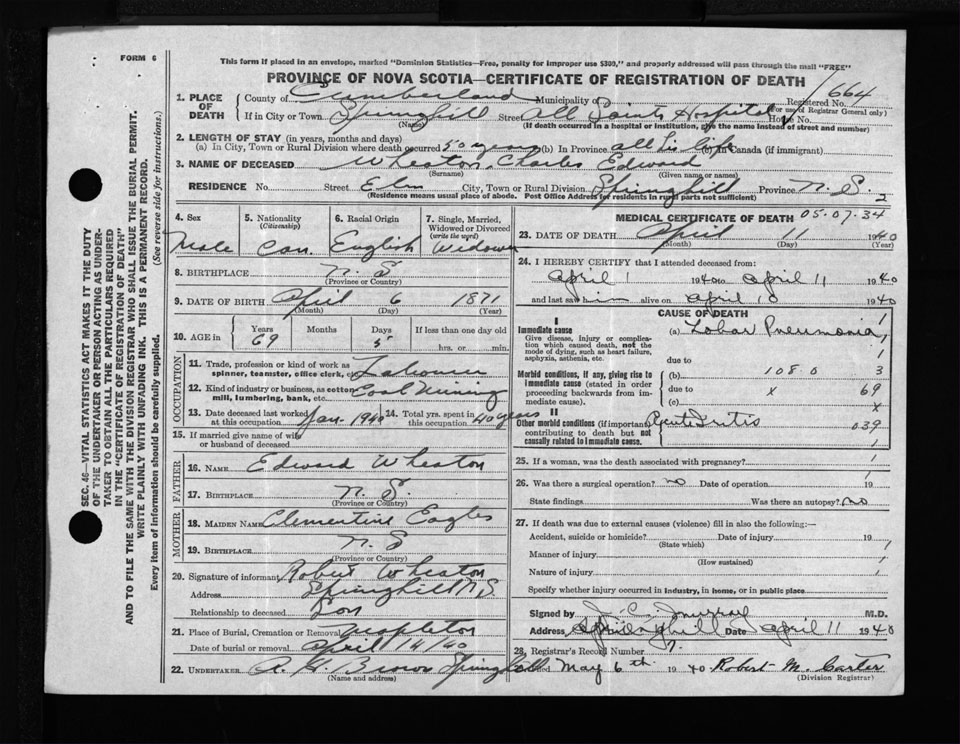 FORM 6
This form if placed in an envelope, marked "Dominion Statistics—Free, penalty for improper use $300," and properly addressed will pass through the mail "FREE"
PROVINCE OF NOVA SCOTIA—CERTIFICATE OF REGISTRATION OF DEATH
1. PLACE OF DEATH
County of Cumberland Municipality of Registered No. 664
(For use of Registrar General only)
If in City or Town Springhill Street All Saints Hospital House No.
(Name) (If death occurred in a hospital or institution, give the name instead of street and number)
2. LENGTH OF STAY (in years, months and days)
(a) In City, Town or Rural Division where death occurred 50 years (b) In Province all his life In Canada (if immigrant)
3. NAME OF DECEASED Wheaton, Charles Edward
(Surname) (Given name or names)
RESIDENCE No. Street Elm City, Town or Rural Division Springhill Province N.S.
(Residence means usual place of abode. Post Office Address for residents in rural parts not sufficient) 2
4. Sex Male
5. Nationality (Citizenship) Can.
6. Racial Origin English
7. Single, Married, Widowed or Divorced (write the word) Widower
8. BIRTHPLACE N. S
(Province or Country)
9. DATE OF BIRTH April 6 1871
(Month) (Day) (Year)
10. AGE in Years 69 Months Days 5 If less than one day old hrs. or min.
OCCUPATION
11. Trade, profession or kind of work as spinner, teamster, office clerk, etc.
12. Kind of industry or business, as cotton mill, lumbering, bank, etc. Coal Mining
13. Date deceased last worked at this occupation Jan. 1940 14. Total yrs. spent in this occupation 40 years
15. If married give name of wife or husband of deceased
FATHER
16. NAME Edward Wheaton
17. BIRTHPLACE N. S.
(Province or Country)
MOTHER
18. MAIDEN NAME Clementine Eagles
19. BIRTHPLACE N. S
(Province or Country)
20. Signature of informant Robert Wheaton
Address Springhill N.S.
Relationship to deceased Son
21. Place of Burial, Cremation or Removal Mapleton
Date of burial or removal April 14/40
22. UNDERTAKER Brown Springhill
(Name and address)
MEDICAL CERTIFICATE OF DEATH 05.07.34
23. DATE OF DEATH April 11 1940
(Month) (Day) (Year)
24. I HEREBY CERTIFY that I attended deceased from:
April 1 1940 to April 11 1940
and last saw him alive on April 10 1940
CAUSE OF DEATH
I
Immediate cause (a) Lobar Pneumonia 1
Give disease, injury or complication which caused death, not the mode of dying, such as heart failure, asphyxia, asthenia, etc.
due to 1
Morbid conditions, if any, giving rise to immediate cause (stated in order proceeding backwards from immediate cause).
(b) 108.0 3
due to x 69
(c) x
II
Other morbid conditions (if important) contributing to death but not causally related to immediate cause. 039
1
25. If a woman, was the death associated with pregnancy? 1
26. Was there a surgical operation? no Date of operation 19
State findings Was there an autopsy? no
27. If death was due to external causes (violence) fill in also the following:—
Accident, suicide or homicide? Date of injury 19
(State which)
Manner of injury 1
(How sustained)
Nature of injury 1
Specify whether injury occurred in industry, in home, or in public place
Signed by Murray M.D.
Address Springhill Date April 11 1940
28. Registrar's Record Number 7.
Filed May 6th 1940 Robert M. Carter
(Division Registrar)
SEC. 46—VITAL STATISTICS ACT MAKES IT THE DUTY
OF THE UNDERTAKER OR PERSON ACTING AS UNDER-
TAKER TO OBTAIN ALL THE PARTICULARS REQUIRED
IN THE "CERTIFICATE OF REGISTRATION OF DEATH"
AND TO FILE THE SAME WITH THE DIVISION REGISTRAR WHO SHALL ISSUE THE BURIAL PERMIT.
WRITE PLAINLY WITH UNFADING INK. THIS IS A PERMANENT RECORD.
Every item of information should be carefully supplied. (See reverse side for instructions.)